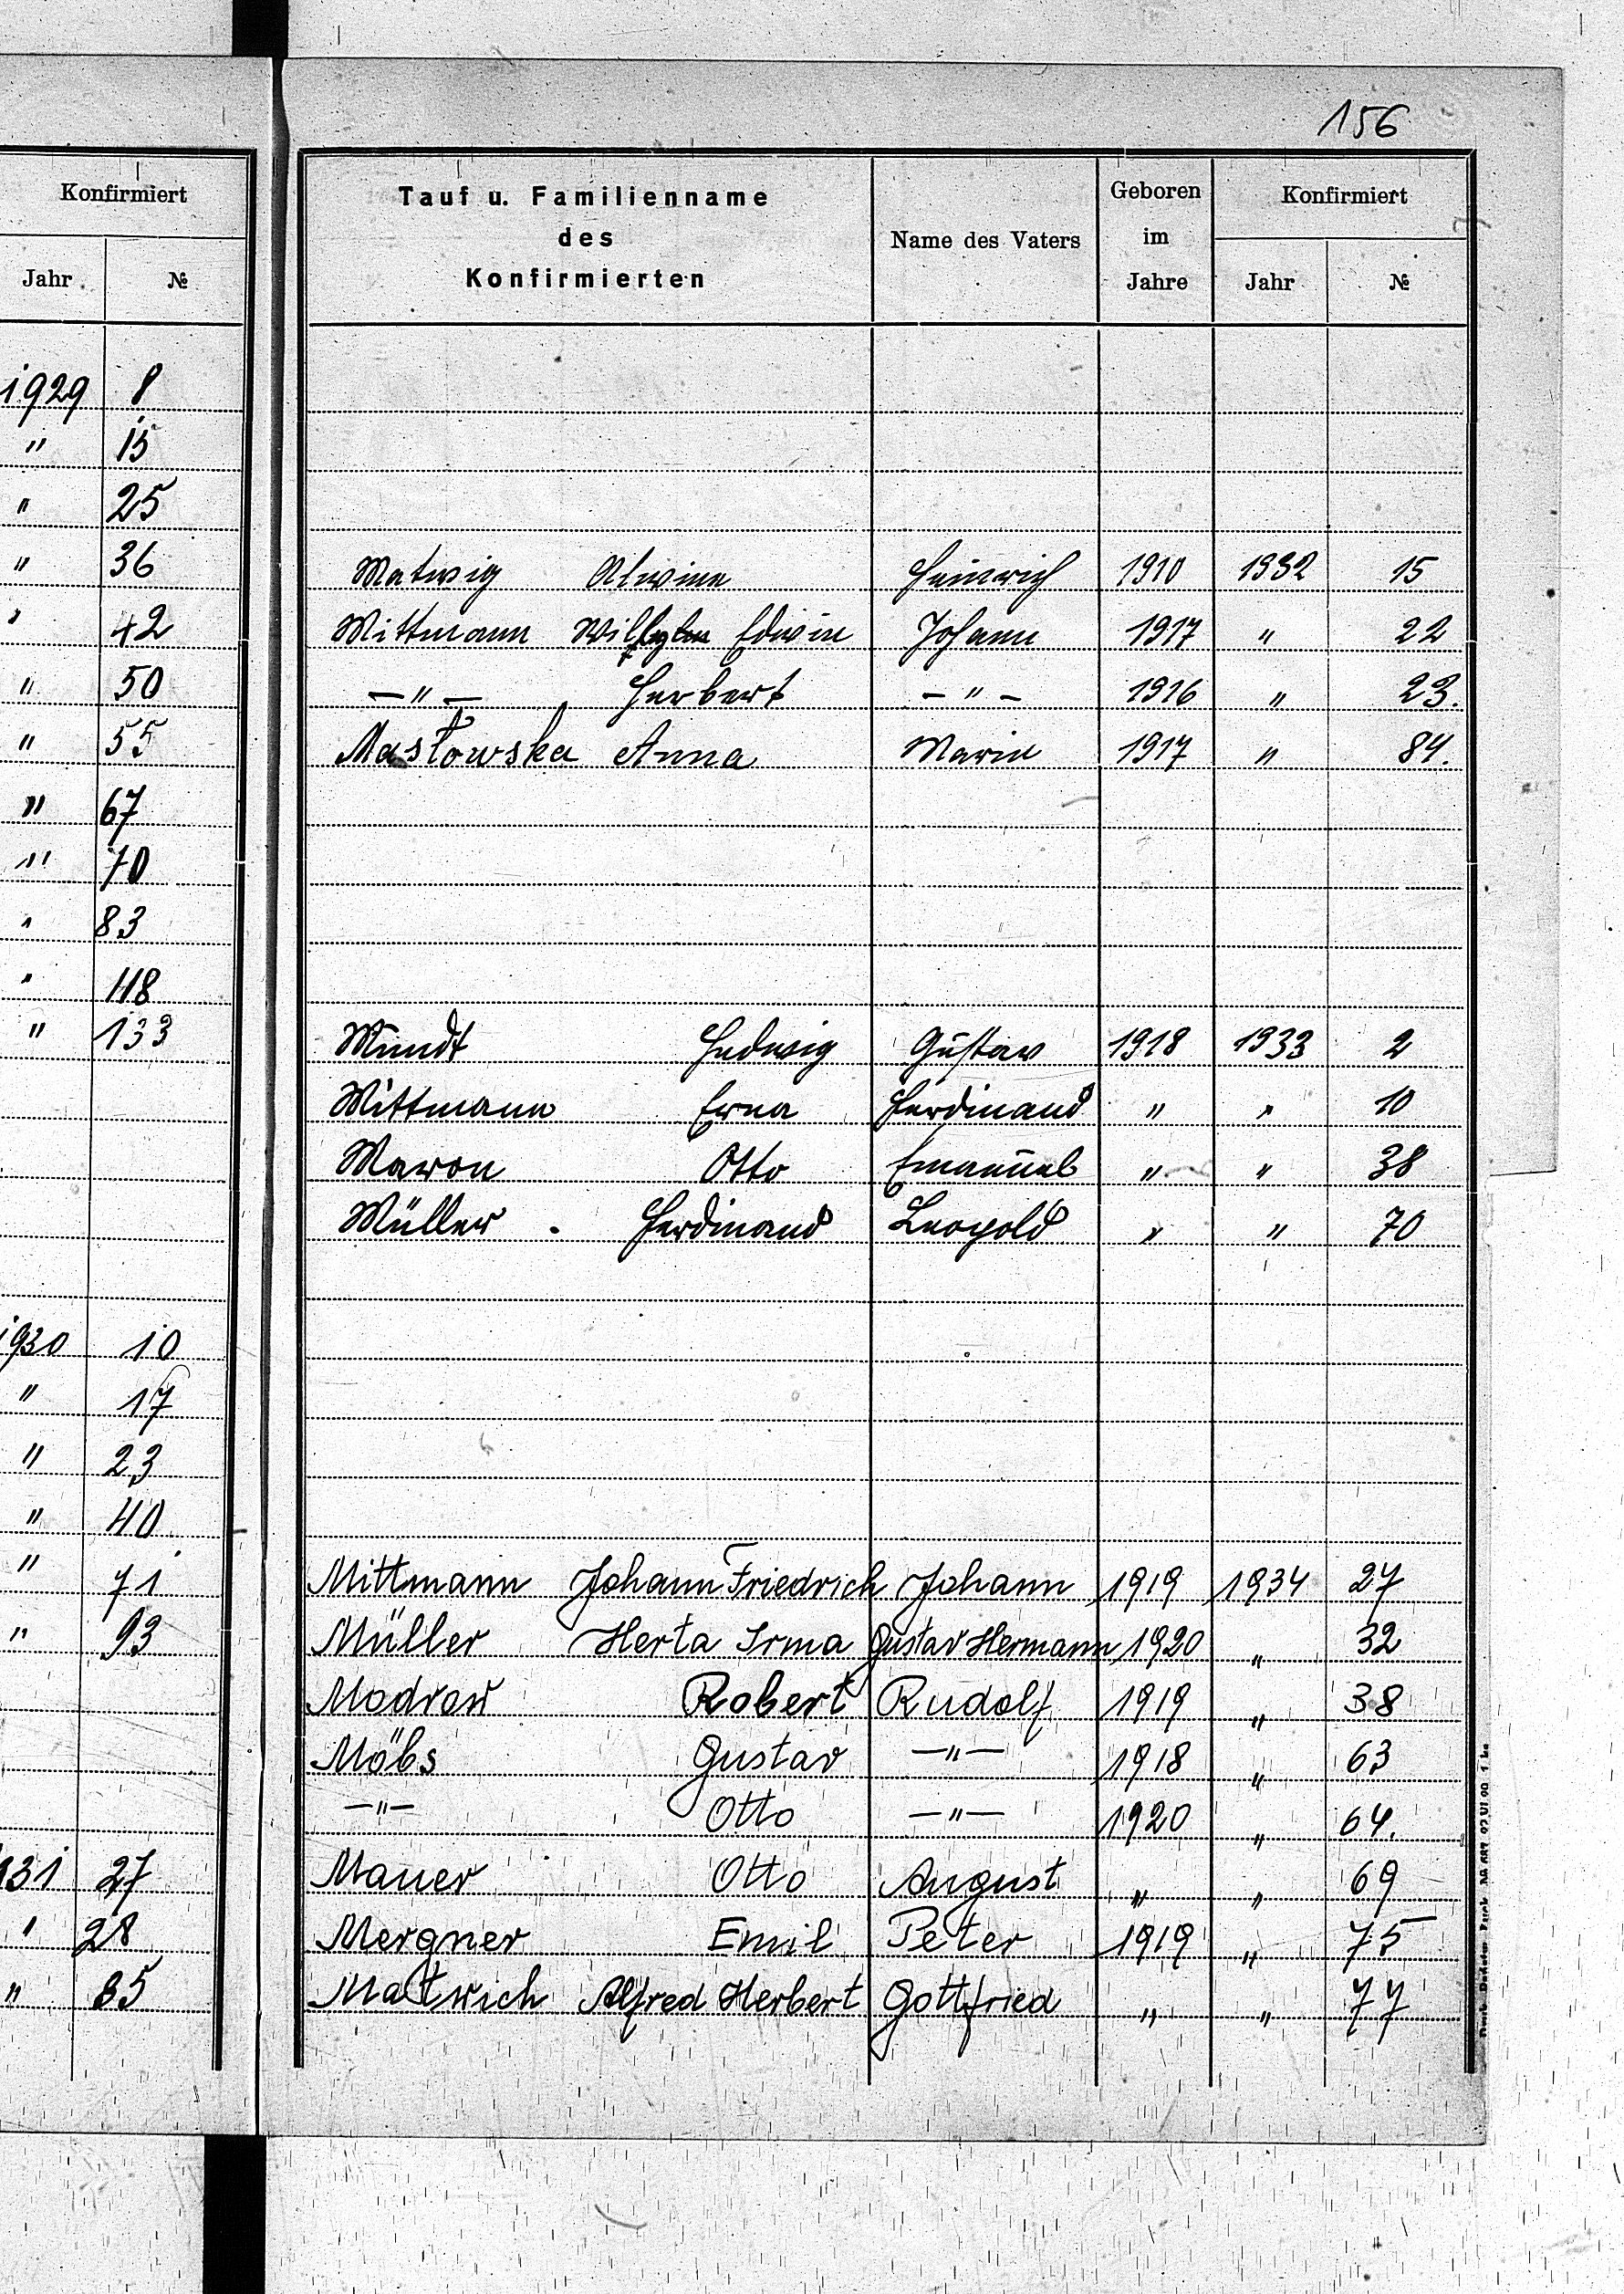 156
Konfirmiert
Jahr №
1929 8
" 15
" 25
" 36
" 42
" 50
" 55
" 67
" 70
" 83
" 118
" 133
1930 10
" 17
" 23
" 40
" 71
" 93
931 27
" 28
" 35
Tauf u. Familienname des Konfirmierten Name des Vaters Geboren im Jahre Konfirmiert Jahr №
Matwig Alwine Heinrich 1910 1932 15
Mittmann Wilhelm Edwin Johann 1917 " 22
—"— Herbert —"— 1916 " 23.
Masłowska Anna Marie 1917 " 84.
Mundt Hedwig Gustav 1918 1933 2
Mittmann Erna Ferdinand " " 10
Maron Otto Emanuel " " 38
Müller Ferdinand Leopold " " 70
Mittmann Johann Friedrich Johann 1919 1934 27
Müller Herta Irma Gustav Hermann 1920 " 32
Modrow Robert Rudolf 1919 " 38
Möbs Gustav —"— 1918 " 63
—"— Otto —"— 1920 " 64.
Mauer Otto August " " 69
Mergner Emil Peter 1919 " 75
Matwich Alfred Herbert Gottfried " " 77